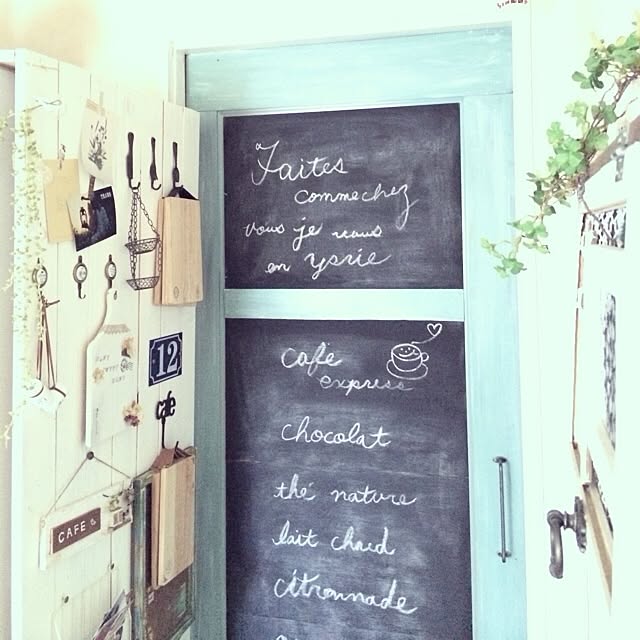 Faites
comme chez
vous je vous
en
café
express
chocolat
thé nature
lait chaud
citronnade
12
cafe
CAFE